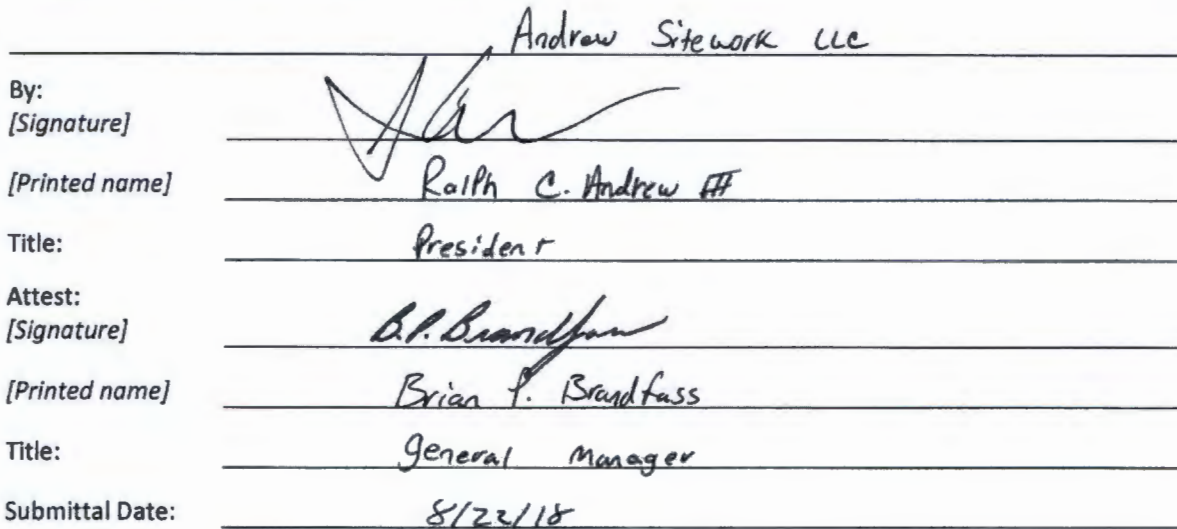 Andrew Sitework LLC
By:
[Signature]
[Printed name] Ralph C. Andrew III
Title: President
Attest:
[Signature] B.P. Brandfass
[Printed name] Brian P. Brandfass
Title: General Manager
Submittal Date: 8/22/18